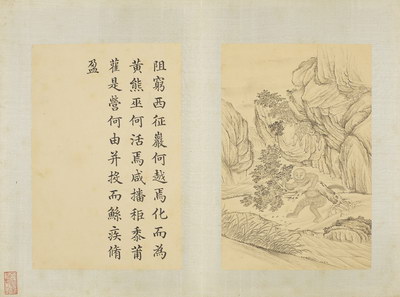 阻窮西征巖何越焉化而為
黃熊巫何活焉咸播秬黍莆
雚是營何由并投而鯀疾脩
盈